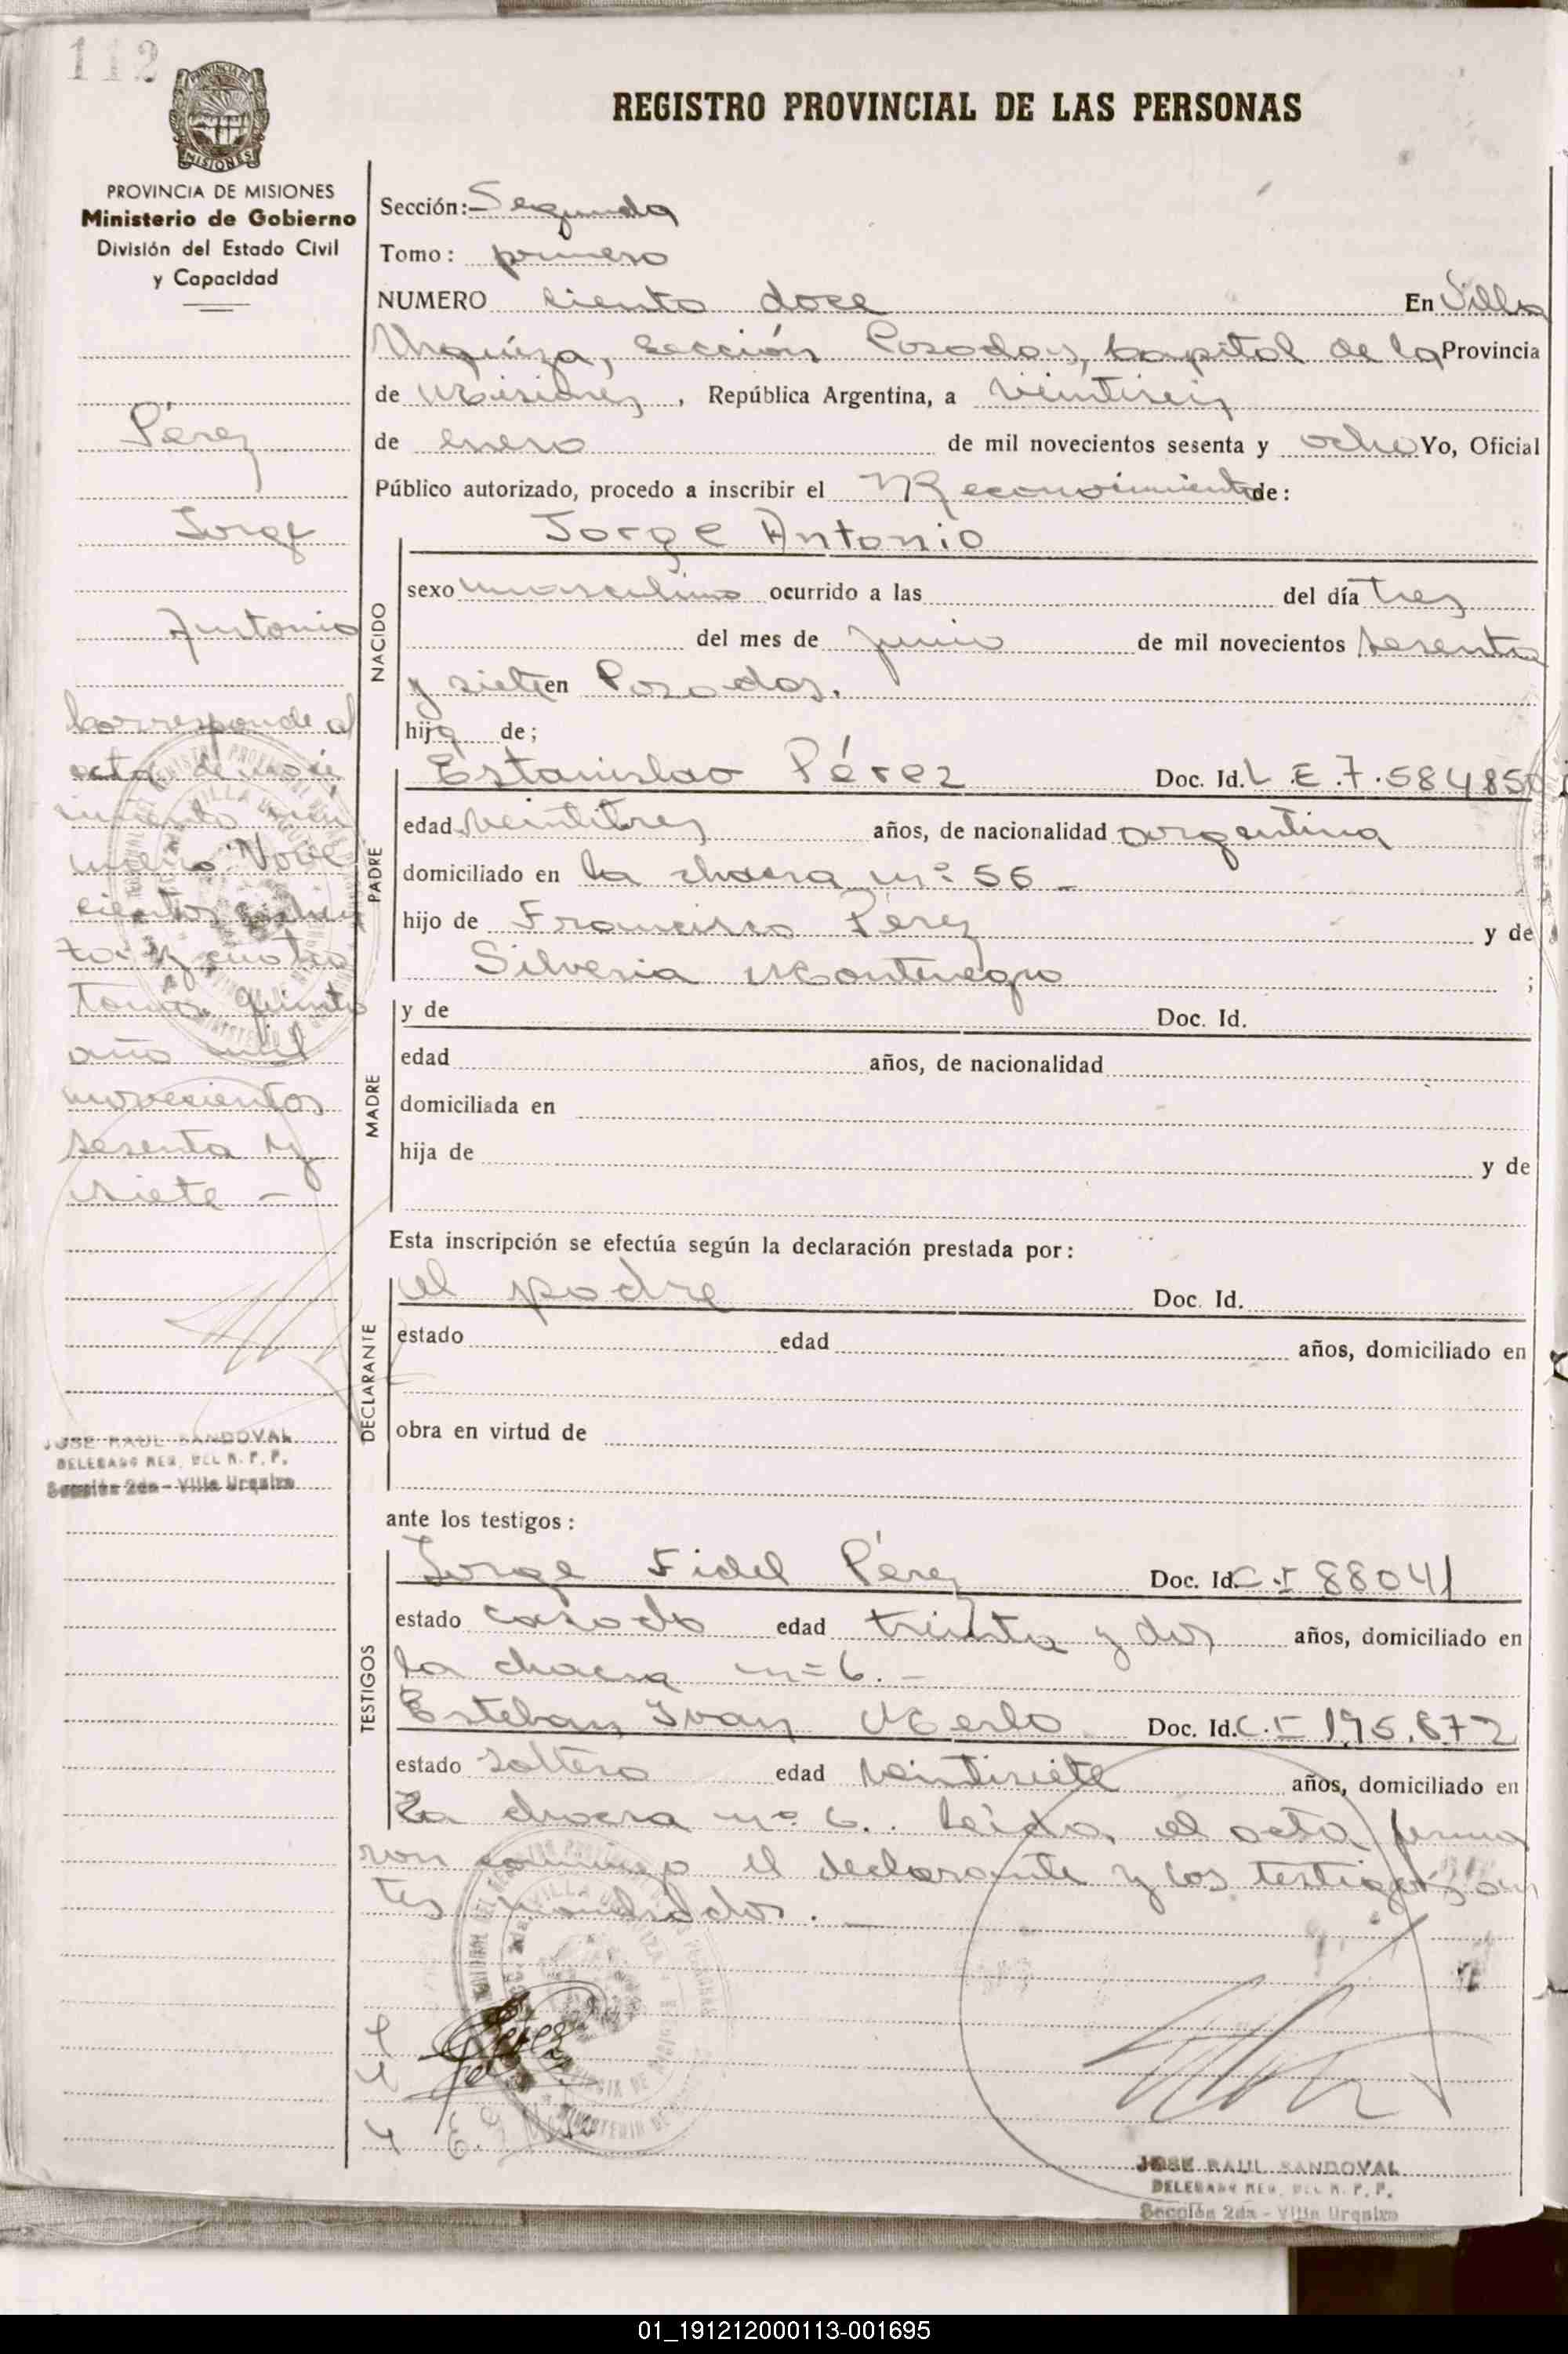 112
PROVINCIA DE MISIONES
MISIONES
PROVINCIA DE MISIONES
Ministerio de Gobierno
División del Estado Civil
y Capacidad
Pérez
Jorge
Antonio
Corresponde al
acta de naci
miento
número Nove
cientos
ta y cuatro
tomo quinto
año mil
novecientos
sesenta y
siete -
JOSE RAUL SANDOVAL
DELEGADO REG. DEL R. P. P.
Sección 2da - Villa Urquiza
REGISTRO PROVINCIAL DE LAS PERSONAS
Sección: Segunda
Tomo: primero
NUMERO ciento doce En Villa
Urquiza, Sección Posadas, Capital de la Provincia
de Misiones, República Argentina, a veintiseis
de enero de mil novecientos sesenta y ocho Yo, Oficial
Público autorizado, procedo a inscribir el Reconocimiento de:
NACIDO
Jorge Antonio
sexo masculino ocurrido a las del día tres
del mes de junio de mil novecientos sesenta
y siete en Posadas.
hijo de;
PADRE
Estanislao Pérez Doc. Id. L.E. 7.584850
edad veintitres años, de nacionalidad argentina
domiciliado en la chacra nº 56 -
hijo de Francisco Pérez y de
Silveria Montenegro ;
MADRE
y de Doc. Id.
edad años, de nacionalidad
domiciliada en
hija de y de
Esta inscripción se efectúa según la declaración prestada por:
DECLARANTE
el padre Doc. Id.
estado edad años, domiciliado en
obra en virtud de
ante los testigos:
TESTIGOS
Jorge Fidel Pérez Doc. Id. C.I 88041
estado casado edad treinta y dos años, domiciliado en
la chacra nº 6. -
Esteban Ivan Merlo Doc. Id. C.I 195.872
estado soltero edad veintisiete años, domiciliado en
la chacra nº 6. Leida el acta firma
ron conmigo el declarante y los testigos an
tes nombrados. -
JOSE RAUL SANDOVAL
DELEGADO REG. DEL R. P. P.
Sección 2da - Villa Urquiza
01_191212000113-001695